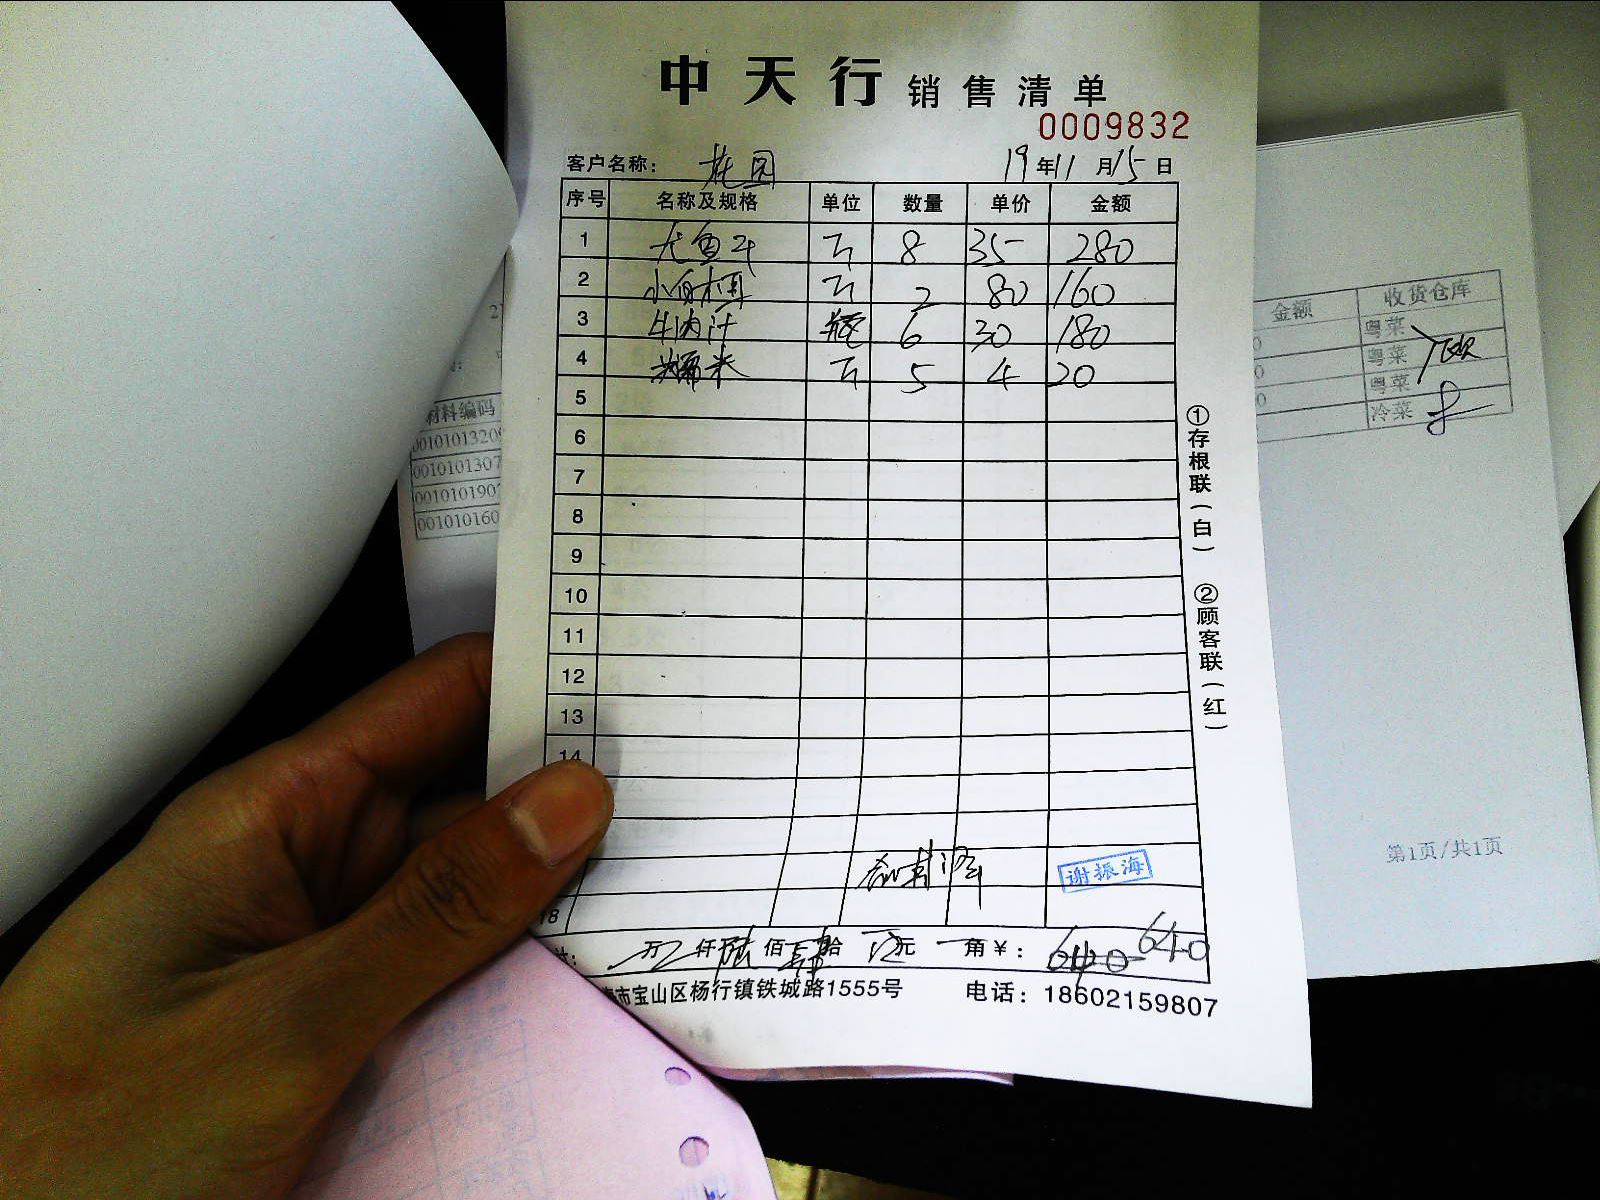 中天行 销售清单
0009832
客户名称： 花园 19年11月15日
序号 名称及规格 单位 数量 单价 金额
1 尤鱼 斤 8 35 280
2 小白 斤 2 80 160
3 牛肉汁 瓶 6 30 180
4 米 斤 5 4 20
5
6
7
8
9
10
11
12
13
14
谢振海
18
万 仟陆佰肆拾 元 角￥： 640 640
市宝山区杨行镇铁城路1555号 电话：18602159807
①存根联（白） ②顾客联（红）
金额 收货仓库
粤菜
粤菜
粤菜
冷菜
第1页/共1页
材料编码
00101013209
001010130
001010190
001010160